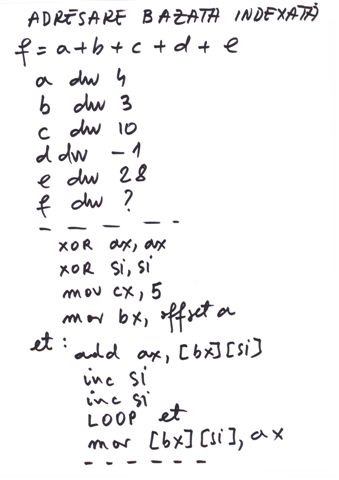 ADRESARE BAZATA INDEXATĂ
f = a+b+c+d+e
a dw 4
b dw 3
c dw 10
d dw -1
e dw 28
f dw ?
- - - - -
XOR ax, ax
XOR si, si
mov cx, 5
mov bx, offset a
et: add ax, [bx][si]
inc si
inc si
LOOP et
mov [bx][si], ax
- - - - - -